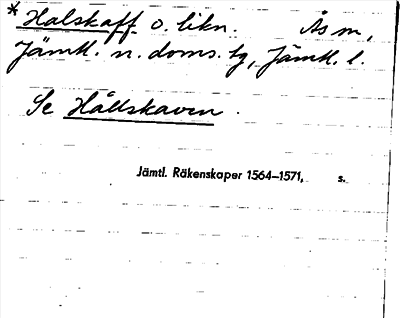 * Halskaff o. likn. Ås sn,
Jämtl. n. doms. tg, Jämtl. l.
Se Hällskaven.
Jämtl. Räkenskaper 1564–1571, s.